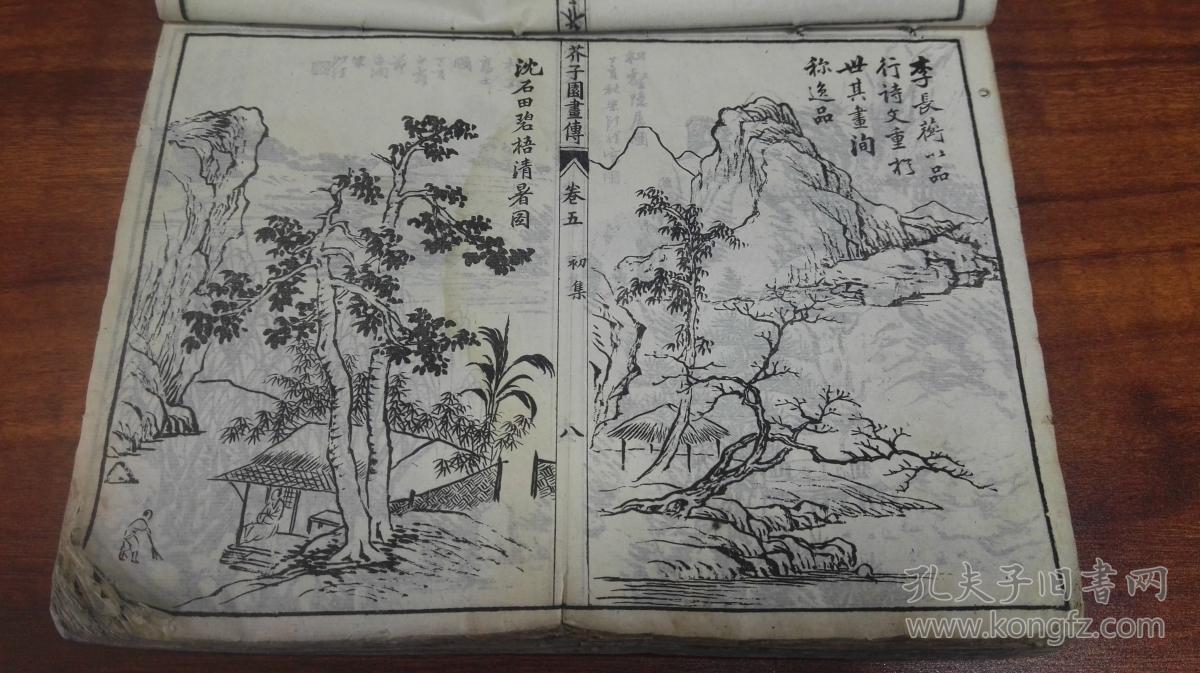 李長蘅以品
行詩文重於
世其畫洵
称逸品
芥子園畫傳
卷五
初集
八
沈石田碧梧清暑図
孔夫子旧书网
www.kongfz.com